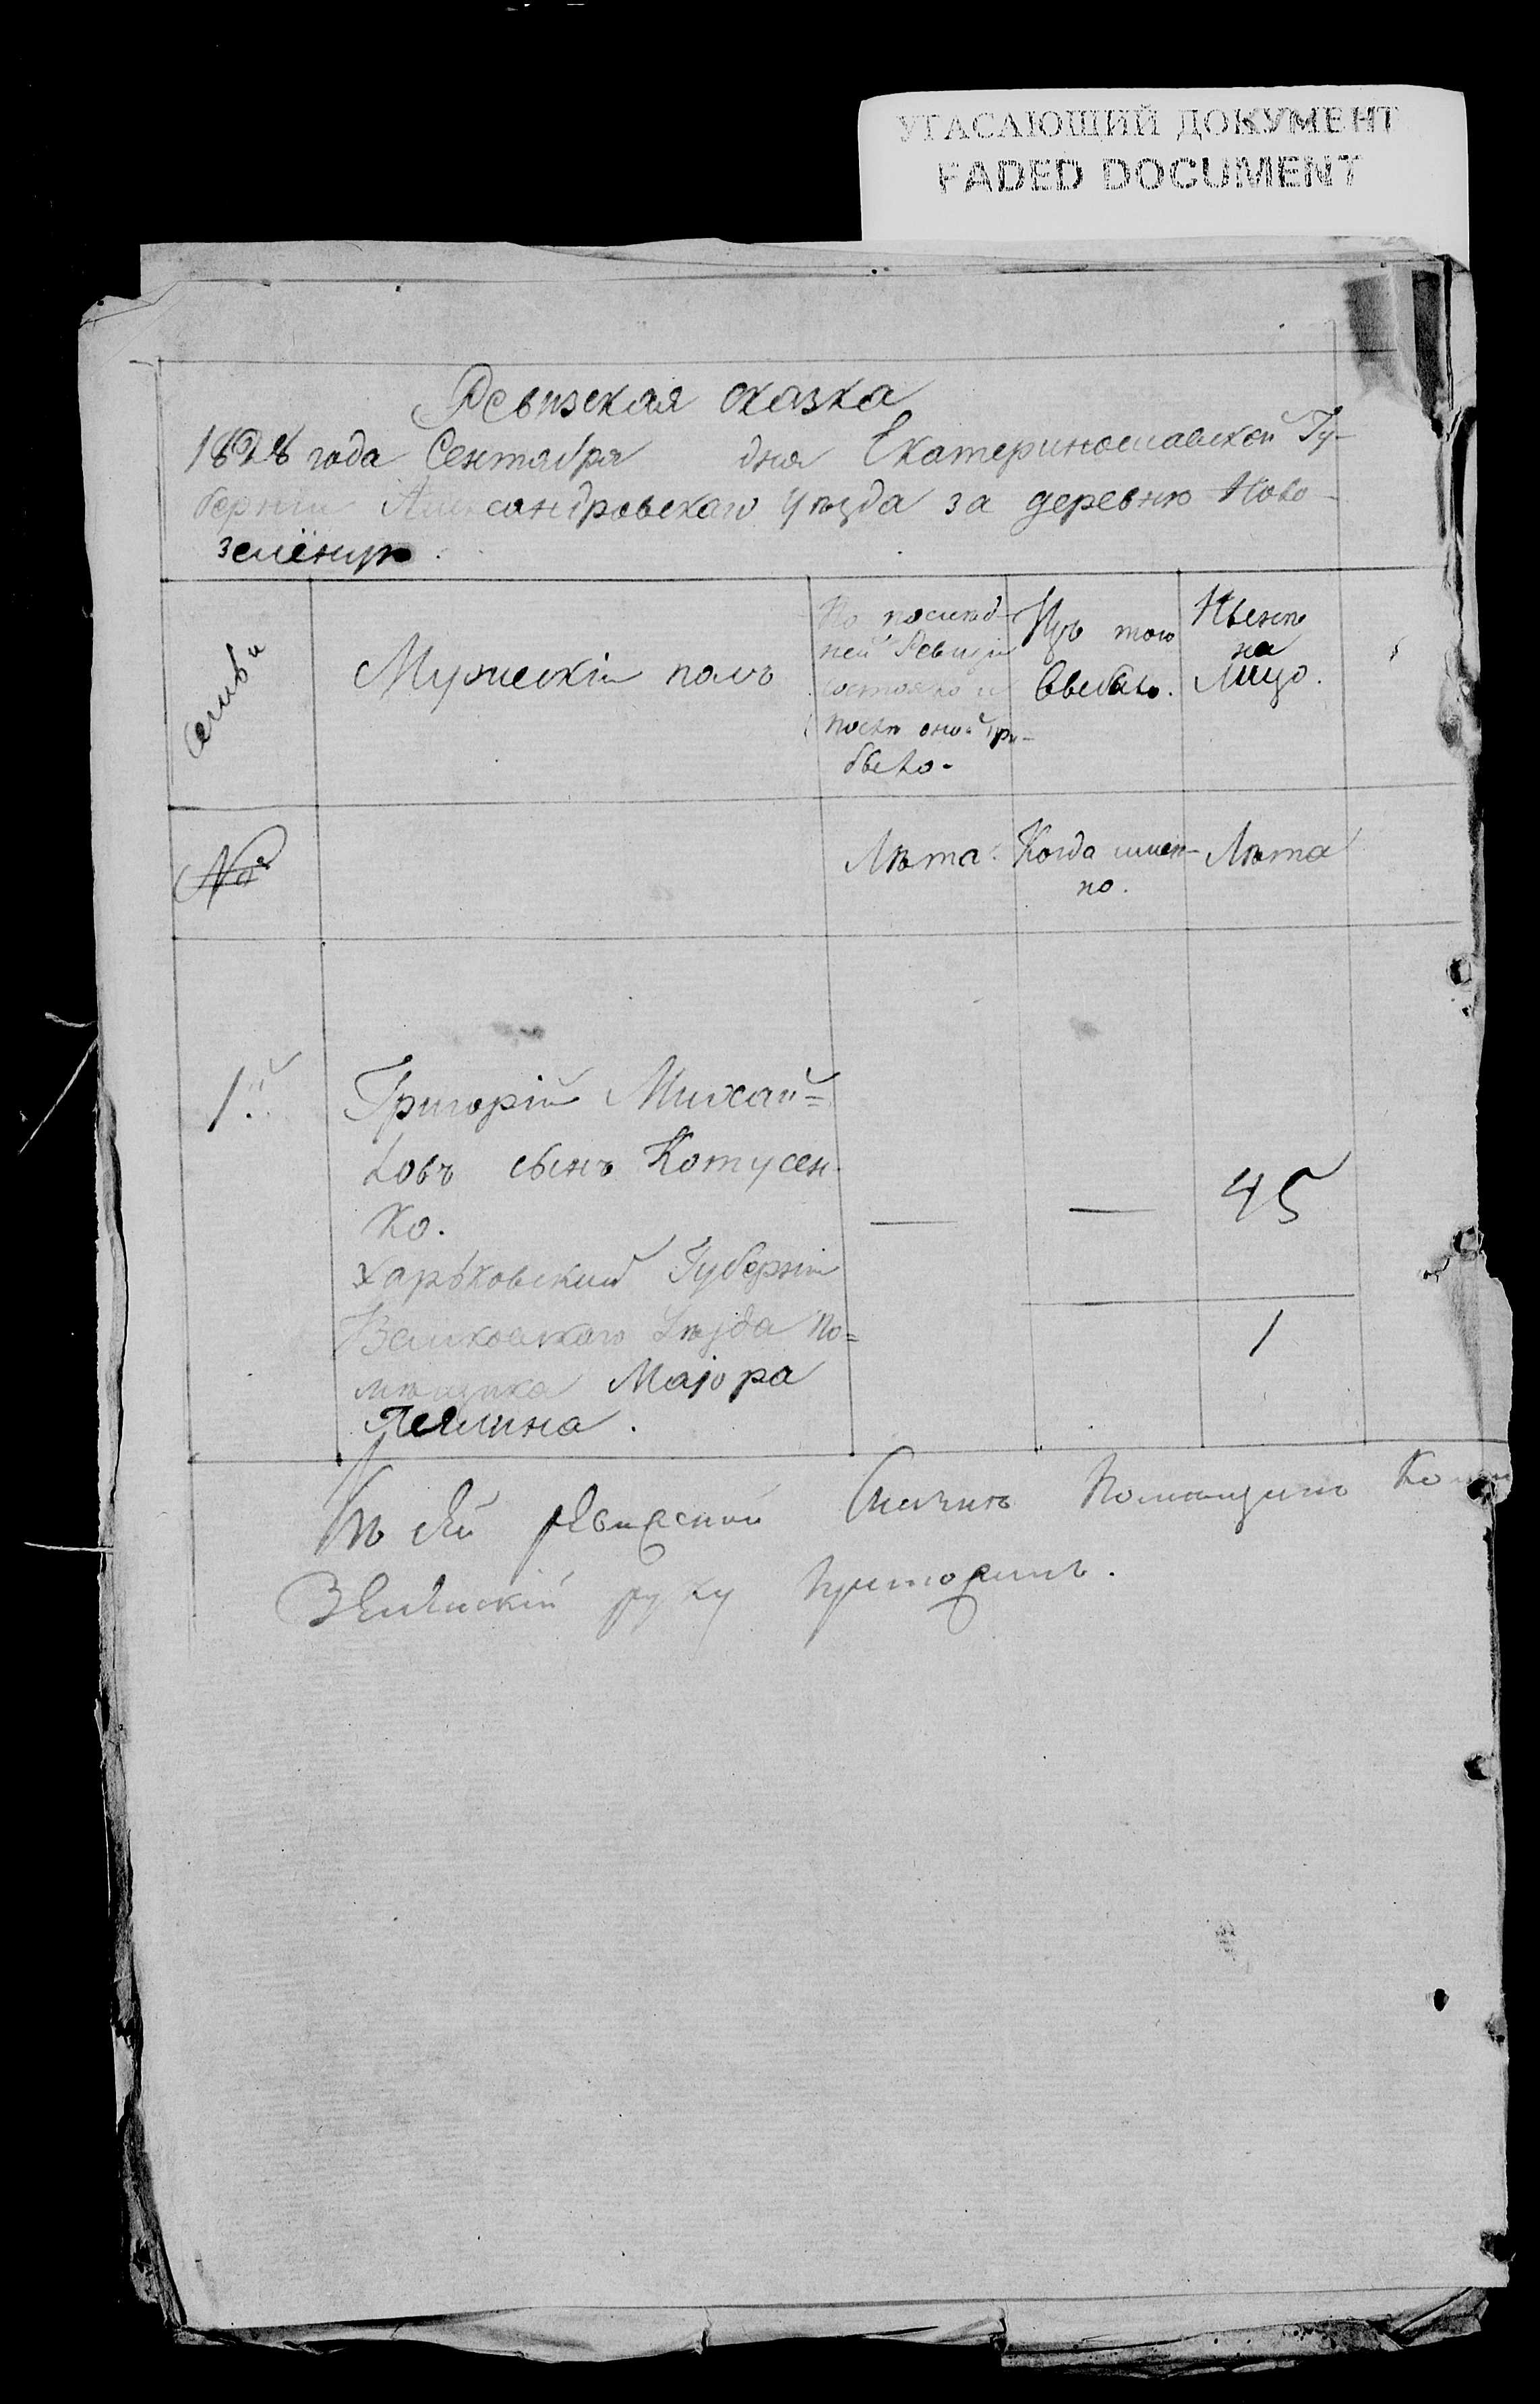 УГАСАЮЩИЙ ДОКУМЕНТ
FADED DOCUMENT
Ревизская сказка
1828 года Сентября дня Екатеринославской Гу-
берніи Александровскаго Уѣзда за деревню Ново-
зелёную.
Семьи
Мужескій полъ
По послѣд-
ней Ревизіи
состояло и
послѣ оной при-
было.
Изъ того
выбыло.
Нынѣ
на
Лицо.
№
Лѣта.
Когда имен-
но.
Лѣта
1й
Григорій Михай=
ловъ сынъ Котусен-
ко.
45
Харьковский Губерніи
Валковскаго Уѣзда По=
мѣщика Маіора
1
Къ сей ревизской Помещикъ
руку приложилъ.